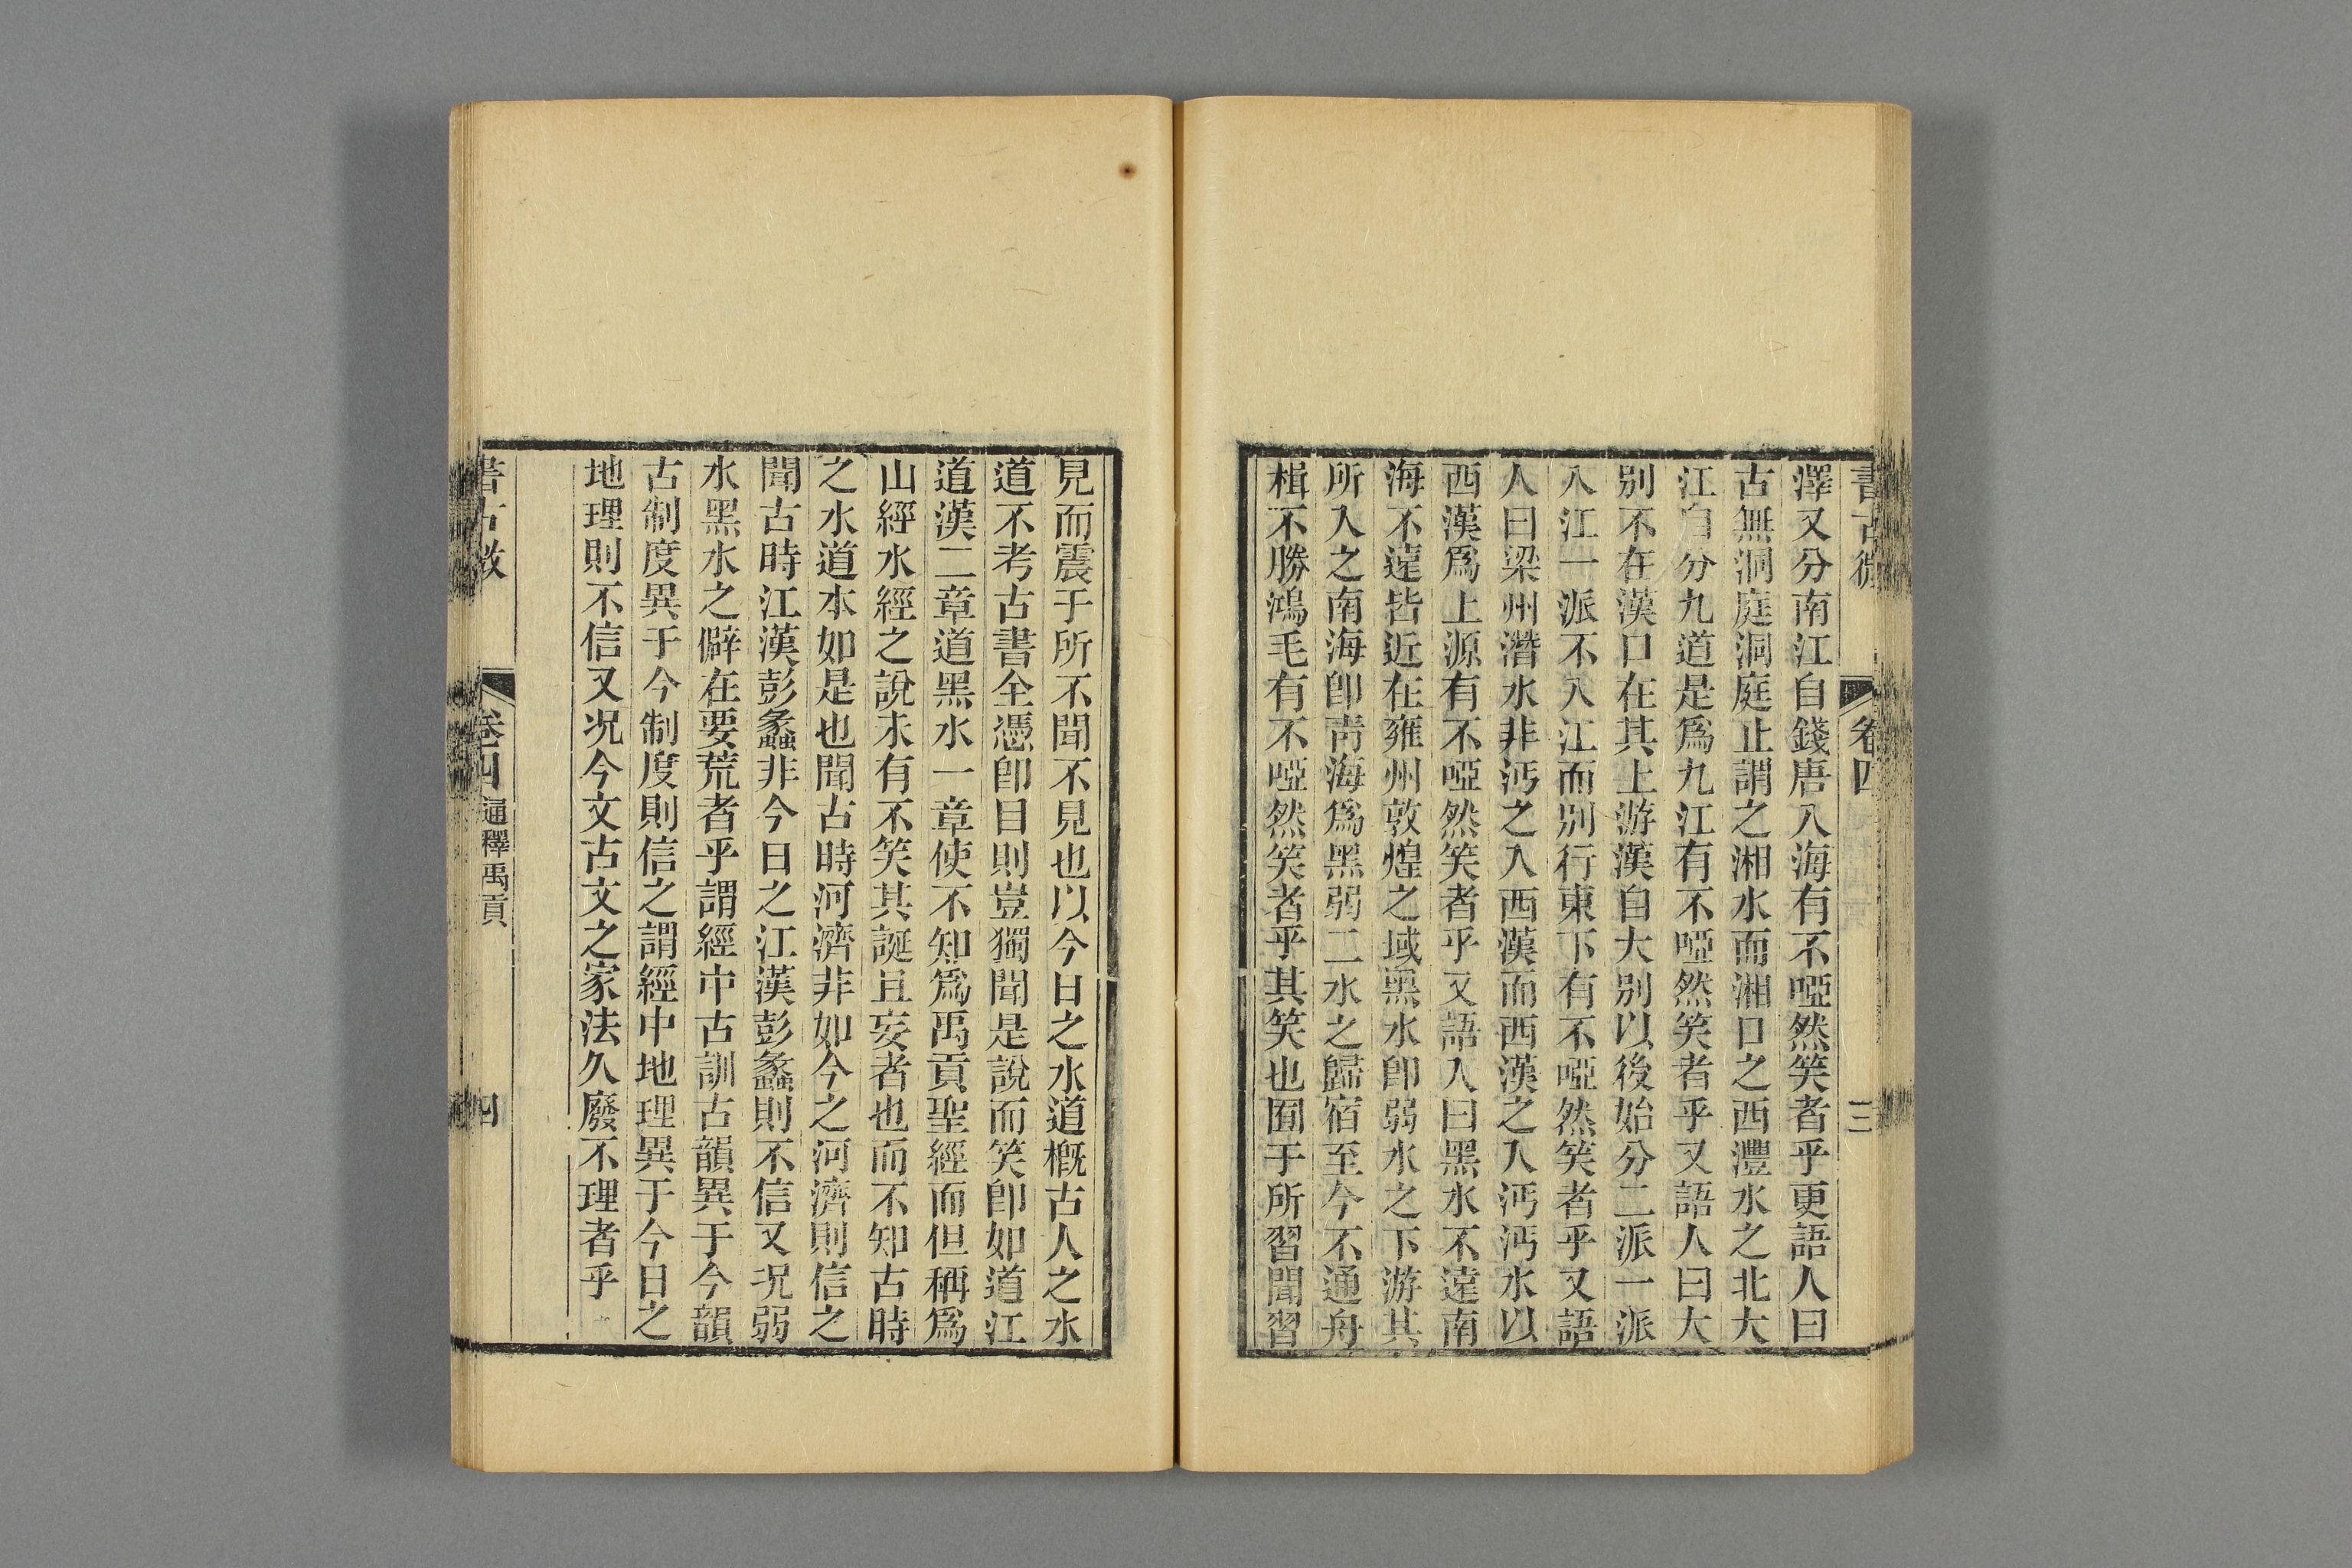 書古微 卷四 三
澤又分南江自錢唐入海有不啞然笑者乎更語人曰
古無洞庭洞庭止謂之湘水而湘口之西灃水之北大
江自分九道是爲九江有不啞然笑者乎又語人曰大
別不在漢口在其上游漢自大別以後始分二派一派
入江一派不入江而別行東下有不啞然笑者乎又語
人曰梁州潛水非沔之入西漢而西漢之入沔沔水以
西漢爲上源有不啞然笑者乎又語人曰黑水不遠南
海不遠皆近在雍州敦煌之域黑水卽弱水之下游其
所入之南海卽靑海爲黑弱二水之歸宿至今不通舟
楫不勝鴻毛有不啞然笑者乎其笑也囿于所習聞習
見而震于所不聞不見也以今日之水道概古人之水
道不考古書全憑卽目則豈獨聞是說而笑卽如道江
道漢二章道黑水一章使不知爲禹貢聖經而但稱爲
山經水經之說未有不笑其誕且妄者也而不知古時
之水道本如是也聞古時河濟非如今之河濟則信之
聞古時江漢彭蠡非今日之江漢彭蠡則不信又況弱
水黑水之僻在要荒者乎謂經中古訓古韻異于今韻
古制度異于今制度則信之謂經中地理異于今日之
地理則不信又況今文古文之家法久廢不理者乎
書古微 卷四 通釋禹貢 四